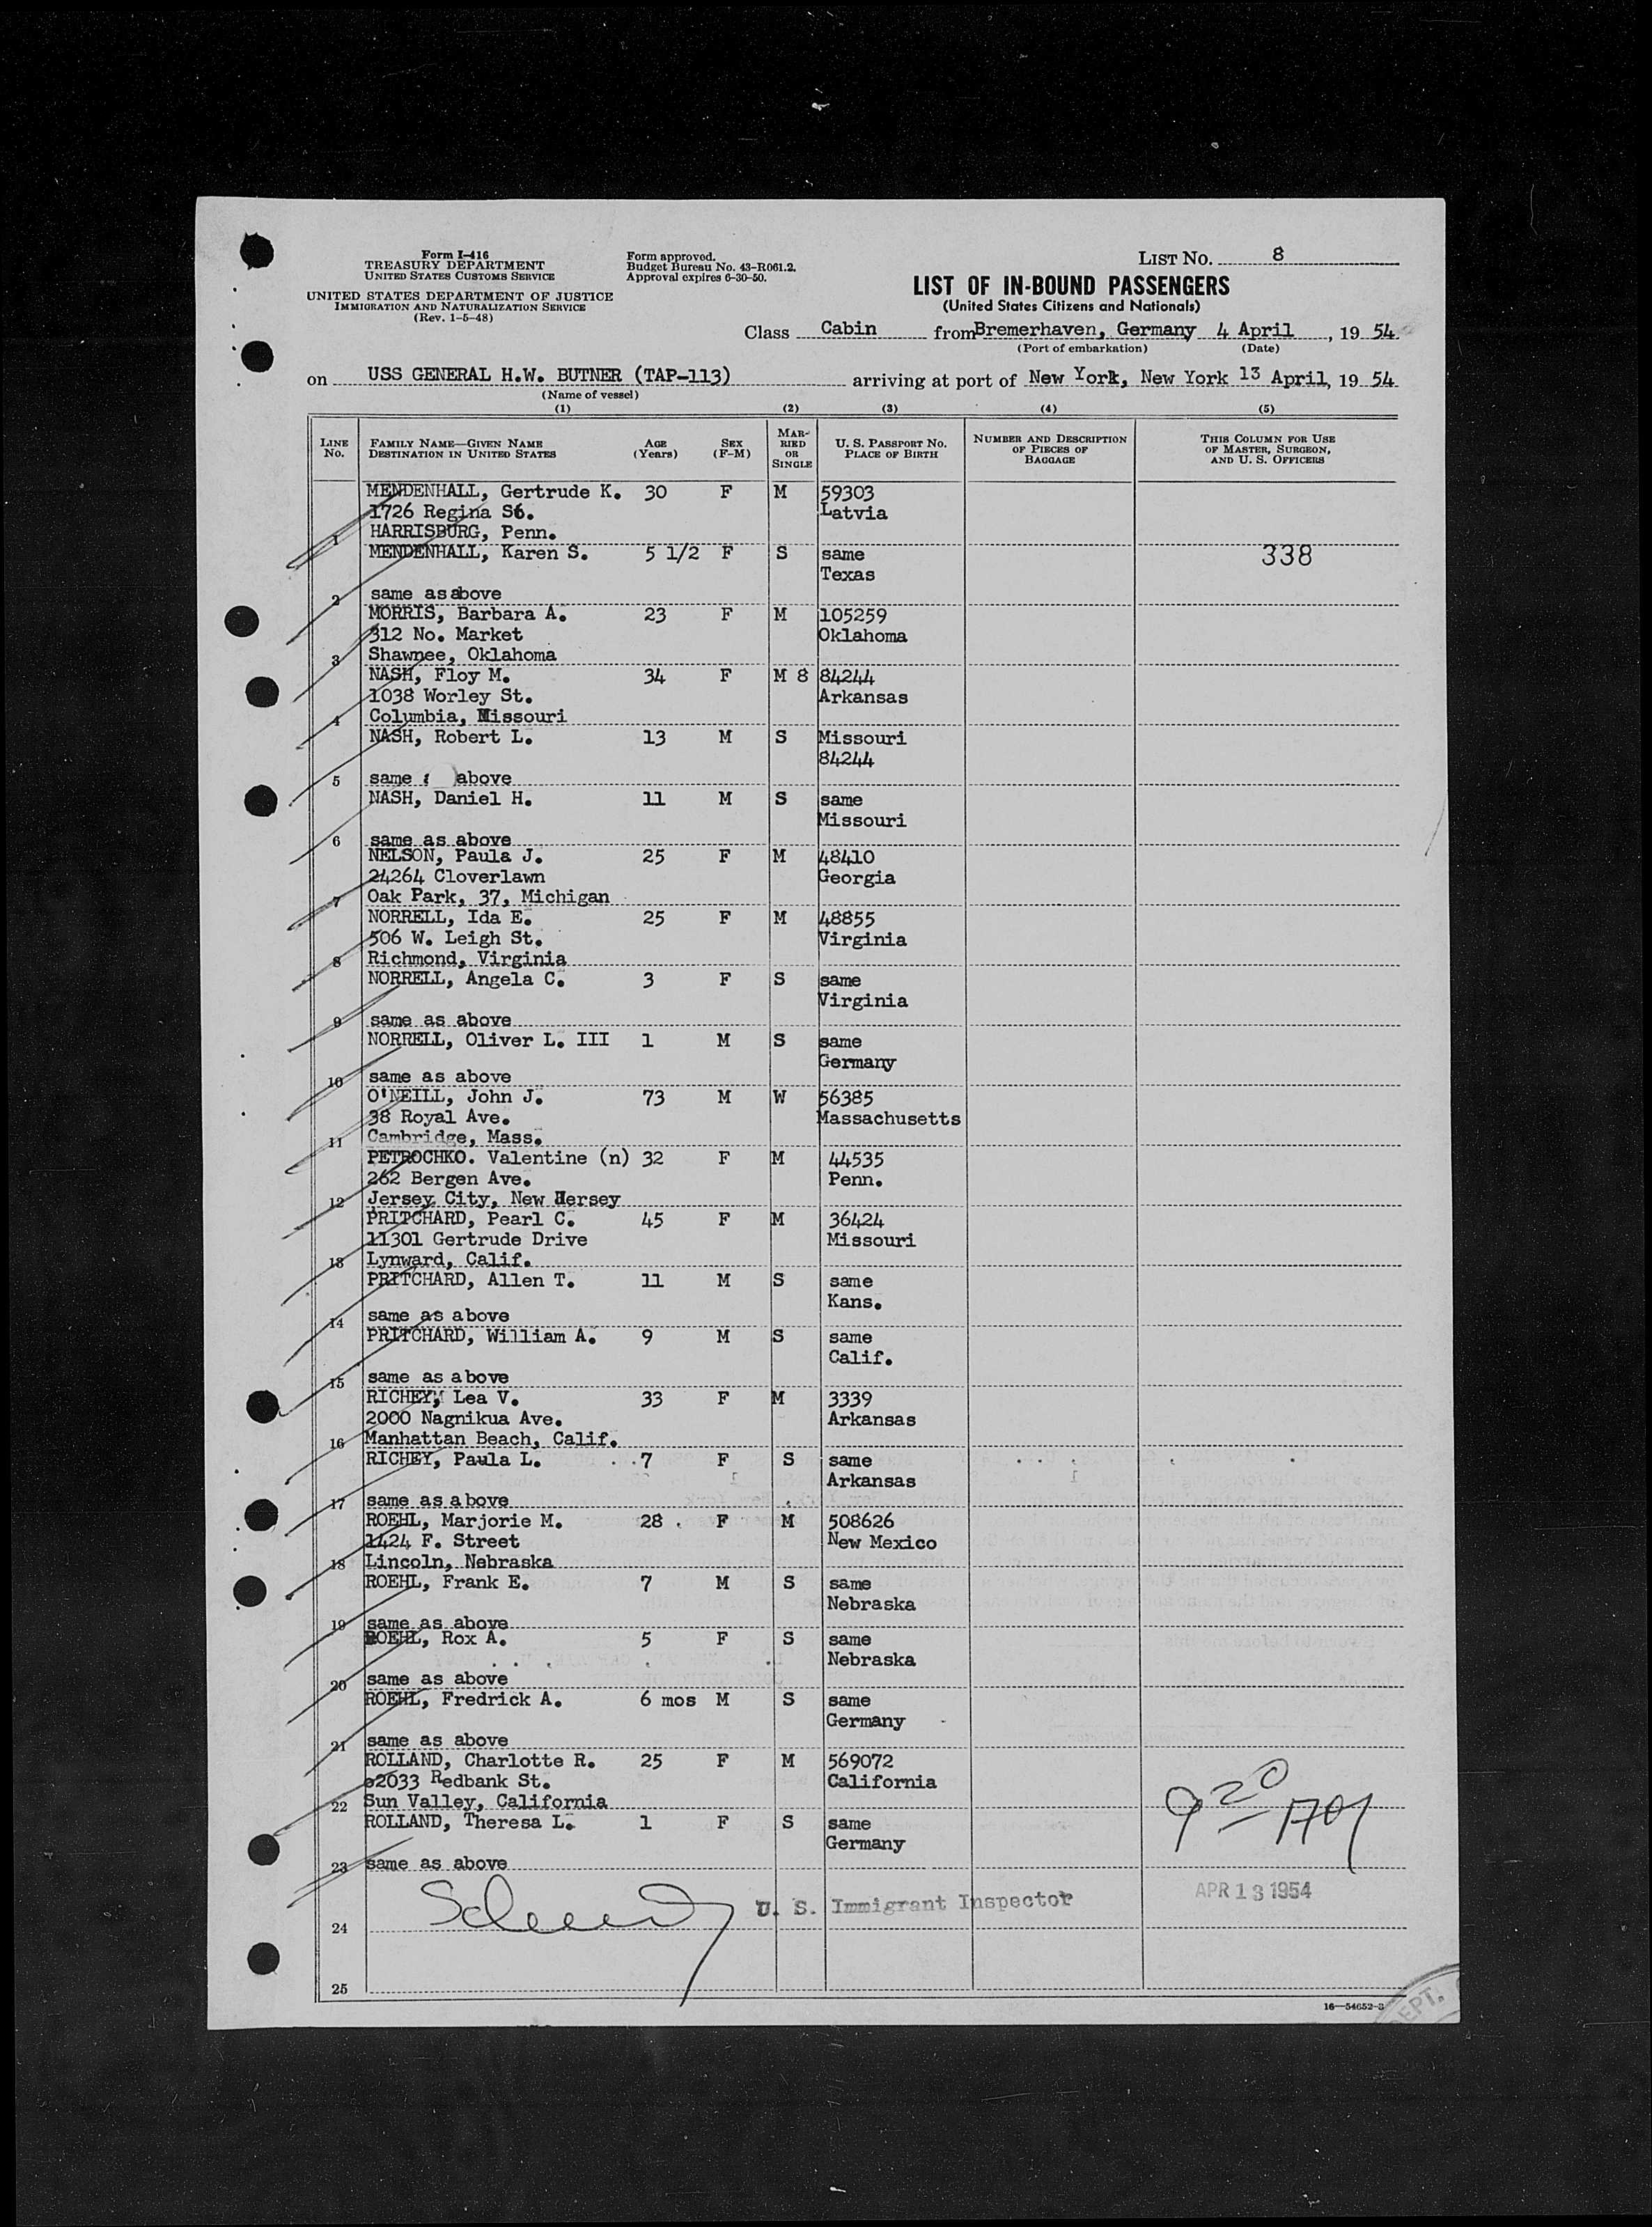 Form I-416
TREASURY DEPARTMENT
UNITED STATES CUSTOMS SERVICE
UNITED STATES DEPARTMENT OF JUSTICE
IMMIGRATION AND NATURALIZATION SERVICE
(Rev. 1-5-48)
Form approved.
Budget Bureau No. 43-R061.2.
Approval expires 6-30-50.
LIST NO. 8
LIST OF IN-BOUND PASSENGERS
(United States Citizens and Nationals)
Class Cabin from Bremerhaven, Germany 4 April, 19 54
(Port of embarkation) (Date)
on USS GENERAL H.W. BUTNER (TAP-113) arriving at port of New York, New York 13 April, 19 54
(Name of vessel)
(1) (2) (3) (4) (5)
LINE NO. FAMILY NAME—GIVEN NAME DESTINATION IN UNITED STATES AGE (Years) SEX (F-M) MARRIED OR SINGLE U. S. PASSPORT NO. PLACE OF BIRTH NUMBER AND DESCRIPTION OF PIECES OF BAGGAGE THIS COLUMN FOR USE OF MASTER, SURGEON, AND U. S. OFFICERS
MENDENHALL, Gertrude K. 30 F M 59303
1726 Regina St. Latvia
1 HARRISBURG, Penn.
MENDENHALL, Karen S. 5 1/2 F S same 338
Texas
2 same as above
MORRIS, Barbara A. 23 F M 105259
312 No. Market Oklahoma
3 Shawnee, Oklahoma
NASH, Floy M. 34 F M 8 84244
1038 Worley St. Arkansas
4 Columbia, Missouri
NASH, Robert L. 13 M S Missouri
84244
5 same above
NASH, Daniel H. 11 M S same
Missouri
6 same as above
NELSON, Paula J. 25 F M 48410
24264 Cloverlawn Georgia
7 Oak Park, 37, Michigan
NORRELL, Ida E. 25 F M 48855
506 W. Leigh St. Virginia
8 Richmond, Virginia
NORRELL, Angela C. 3 F S same
Virginia
9 same as above
NORRELL, Oliver L. III 1 M S same
Germany
10 same as above
O'NEILL, John J. 73 M W 56385
38 Royal Ave. Massachusetts
11 Cambridge, Mass.
PETROCHKO. Valentine (n) 32 F M 44535
262 Bergen Ave. Penn.
12 Jersey City, New Jersey
PRITCHARD, Pearl C. 45 F M 36424
11301 Gertrude Drive Missouri
13 Lynward, Calif.
PRITCHARD, Allen T. 11 M S same
Kans.
14 same as above
PRITCHARD, William A. 9 M S same
Calif.
15 same as above
RICHEY, Lea V. 33 F M 3339
2000 Nagnikua Ave. Arkansas
16 Manhattan Beach, Calif.
RICHEY, Paula L. 7 F S same
Arkansas
17 same as above
ROEHL, Marjorie M. 28 F M 508626
1424 F. Street New Mexico
18 Lincoln, Nebraska
ROEHL, Frank E. 7 M S same
Nebraska
19 same as above
ROEHL, Rox A. 5 F S same
Nebraska
20 same as above
ROEHL, Fredrick A. 6 mos M S same
Germany
21 same as above
ROLLAND, Charlotte R. 25 F M 569072
12033 Redbank St. California
22 Sun Valley, California
ROLLAND, Theresa L. 1 F S same
Germany
23 same as above
U. S. Immigrant Inspector APR 13 1954
24
25
16—54652-3
DEPT.